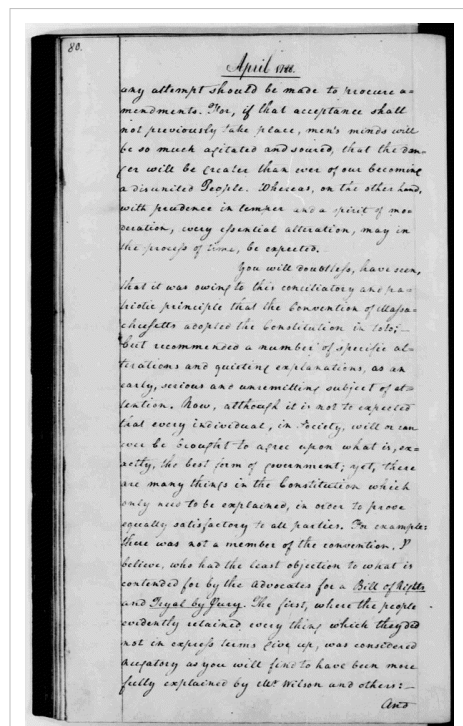 80.
April 1788.
any attempt should be made to procure a-
mendments. For, if that acceptance shall
not previously take place, men's minds will
be so much agitated and soured, that the dan-
ger will be greater than ever of our becoming
a disunited People. Whereas, on the other hand,
with prudence in temper and a spirit of mo-
deration, every essential alteration, may in
the process of time, be expected.
You will doubtless, have seen,
that it was owing to this conciliatory and pa-
triotic principle that the Convention of Massa-
chusetts adopted the Constitution in toto;—
but recommended a number of specific al-
terations and quieting explanations, as an
early, serious and unremitting subject of at-
tention. Now, although it is not to expected
that every individual, in Society, will or can
ever be brought to agree upon what is, ex-
actly, the best form of government; yet, there
are many things in the Constitution which
only need to be explained, in order to prove
equally satisfactory to all parties. For example:
there was not a member of the convention, I
believe, who had the least objection to what is
contended for by the advocates for a Bill of Rights
and Tryal by Jury. The first, where the people
evidently retained every thing which they did
not in express terms give up, was considered
nugatory as you will find to have been more
fully explained by Mr. Wilson and others:—
And